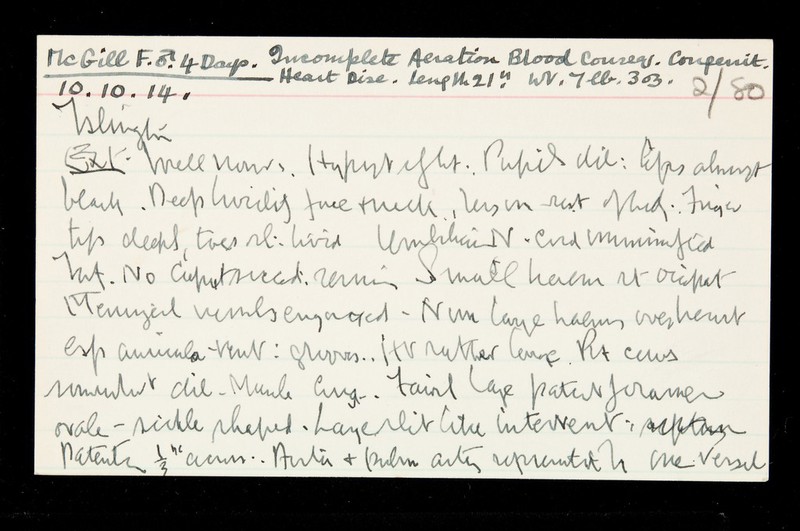 McGill F. ♂. 4 Days. Incomplete Aeration Blood Courses. Congenit.
Heart Dise. Length 21" Wt. 7 lb. 3 oz.
10.10.14.
2/80
Islington
Ext. Well nouris. Hypost slght. Pupils dil: Lips almost
black. Deep lividity face + neck, less on rest of body. Finger
tips deeply, toes sl. livid Umbilicus N. cord mummified
Int. No Caput succed. remain Small haem at occiput
Meningeal vessels engorged - Num large haems over heart
esp auriculo-vent: grooves. Ht rather large. Rt cavs
somewhat dil. Fairl large patent foramen
ovale - sickle shaped. Large slit like intervent: septum
Patent 1/3" across. Aorta + pulm arty represented by one vessel